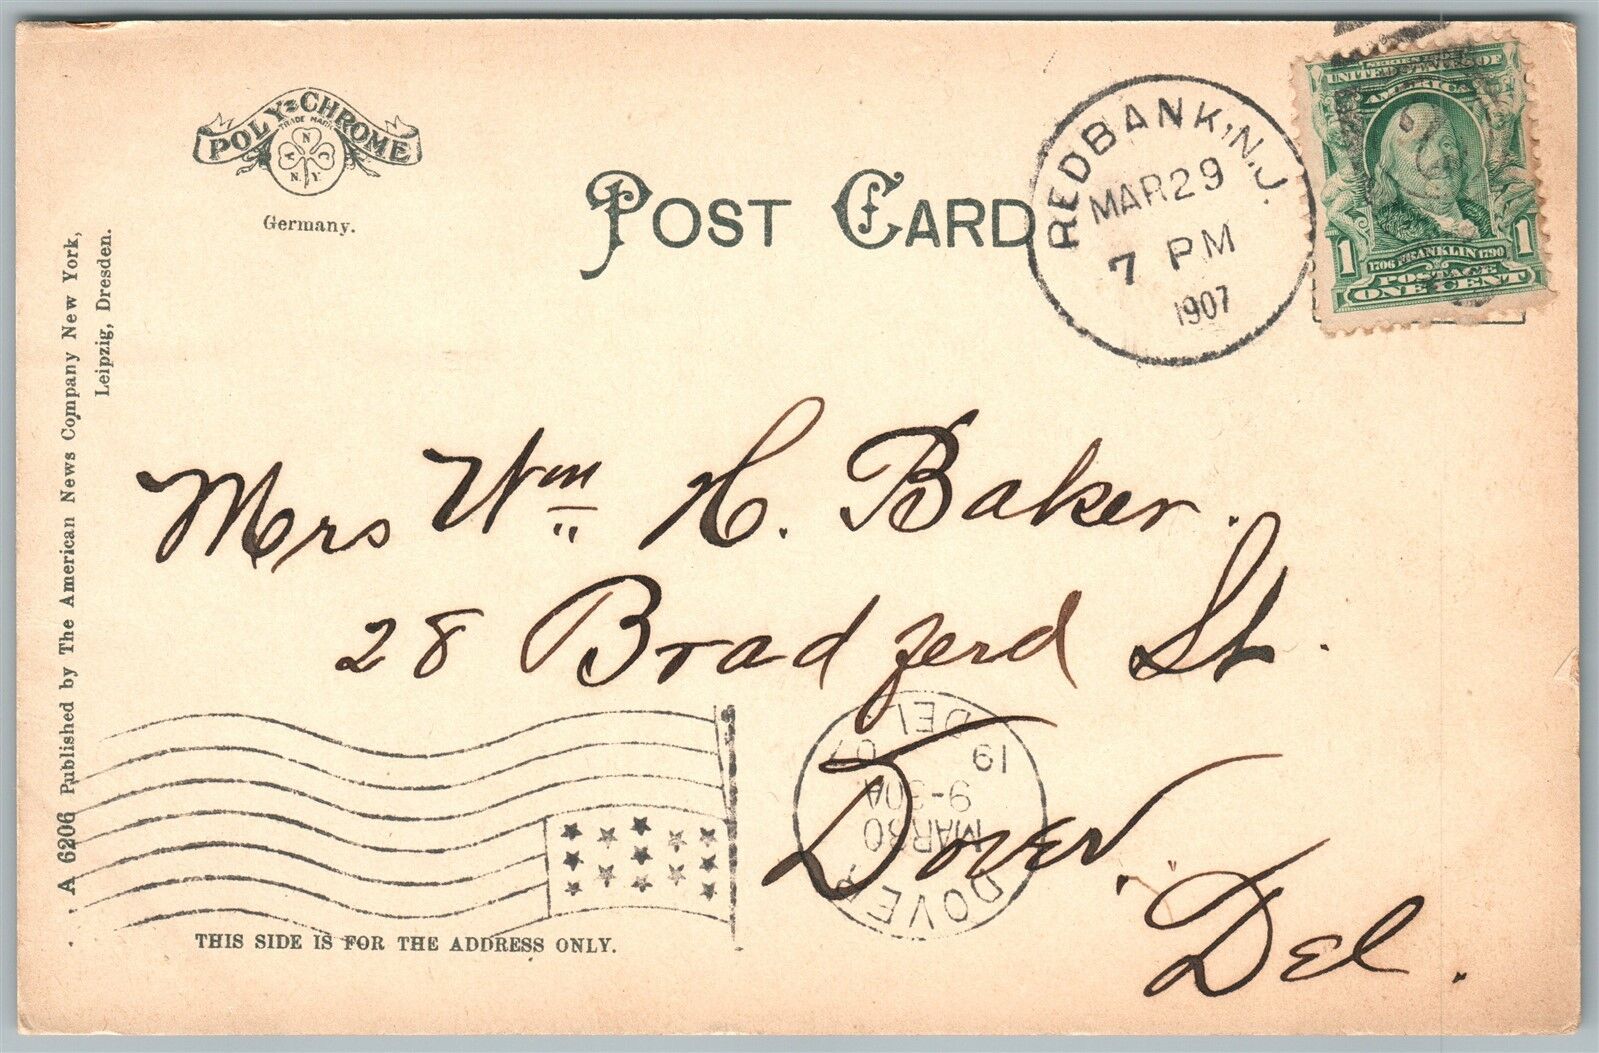 POLY-CHROME
TRADE MARK
A N C
N.Y.
Germany.
POST CARD
REDBANK, N.J.
MAR 29
7 PM
1907
SERIES 1902
UNITED STATES OF
AMERICA
1 1706 FRANKLIN 1790 1
POSTAGE
ONE CENT
A 6206 Published by The American News Company New York,
Leipzig, Dresden.
Mrs Wm H. Baker.
28 Bradferd St.
Dover,
Del.
DOVER
MAR 30
9-30A
19 07
DEL
THIS SIDE IS FOR THE ADDRESS ONLY.